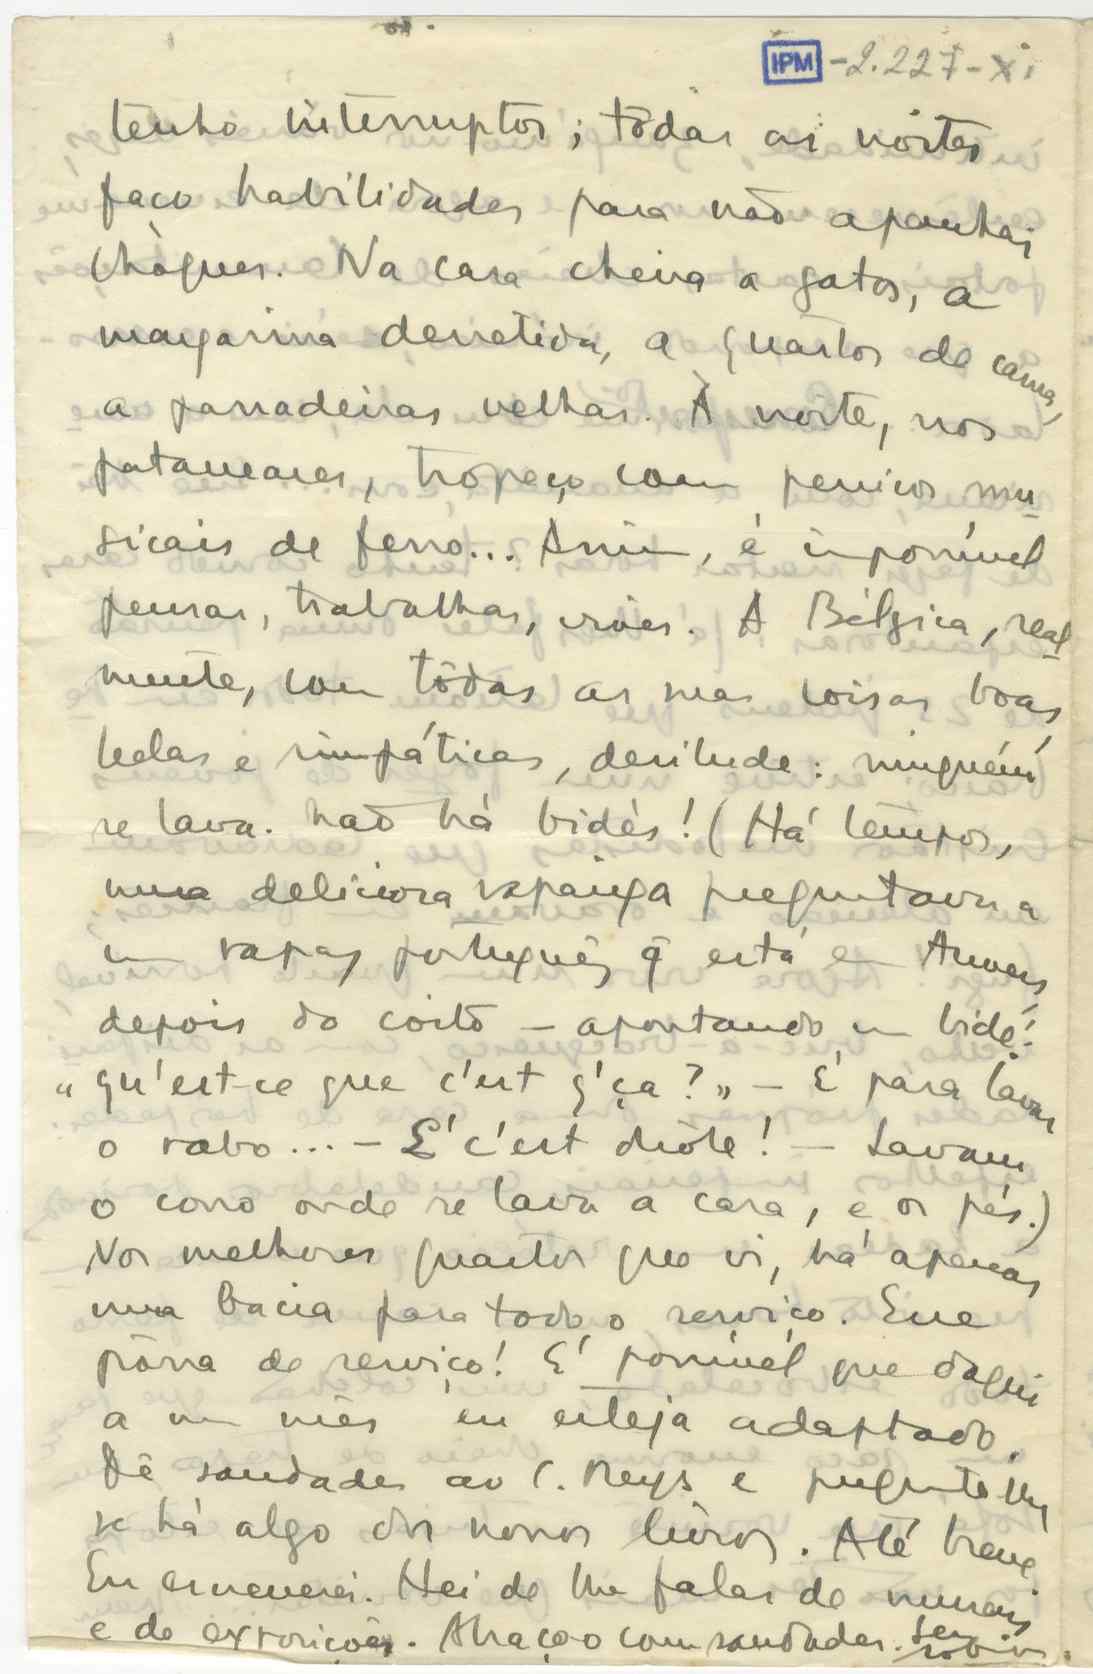 IPM -2.227-XI
tenho interruptor; tôdas as noites
faço habilidades para não apanhar
chòques. Na casa cheira a gatos, a
margarina derretida, a quartos de cama,
a passadeiras velhas. À noite, nos
patamares, tropeço com penicos mu-
sicais de ferro... Assim, é impossível
pensar, trabalhar, viver. A Bélgica, real-
mente, com tôdas as suas coisas boas,
belas e simpáticas, desilude: ninguém
se lava. Não há bidés! (Há tempos,
uma deliciosa rapariga preguntava a
um rapaz português q̃ está em Anvers
depois do coito — apontando um bidé:
"Qu'est-ce que c'est q'ça?" — É para lavar
o rabo... — E' c'est drôle! — Lavam
o cono onde se lava a cara, e os pés.)
Nos melhores quartos que vi, há apenas
uma bacia para todo o serviço. Que
pôrra de serviço! É possível que daqui
a um mês eu esteja adaptado.
Dê saudades ao C. Reys e pregunte-lhe
se há algo dos novos livros. Até breve.
Eu escreverei. Hei de lhe falar de museus
e de exposições. Abraça-o com saudades. Seu